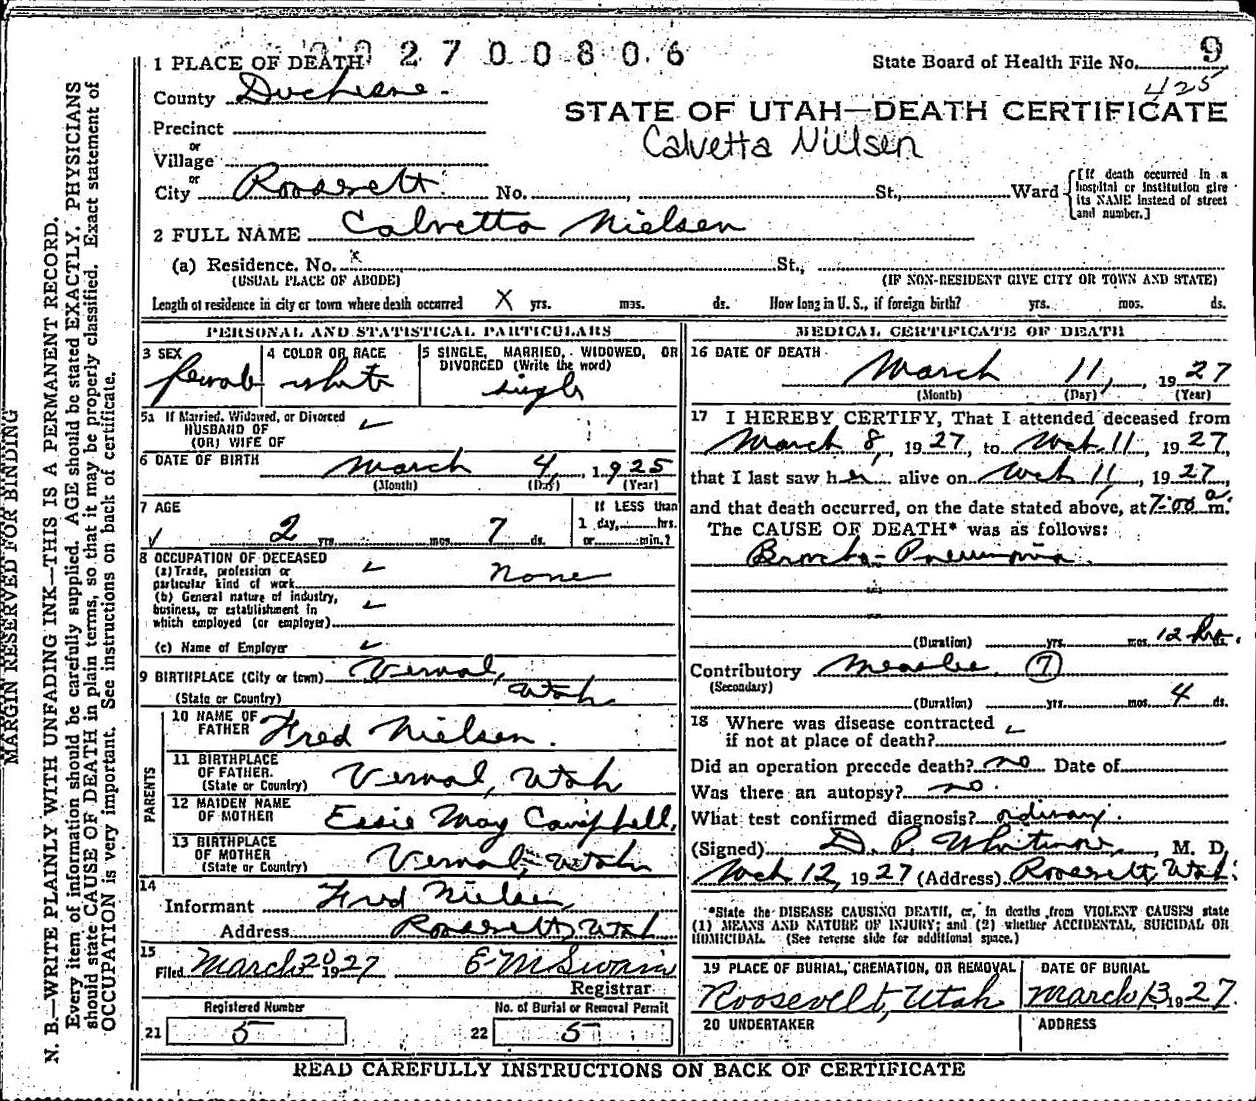 1 PLACE OF DEATH 2 7 0 0 8 0 6
State Board of Health File No. 9
425
County Duchesne
STATE OF UTAH—DEATH CERTIFICATE
Calvetta Nielsen
Precinct
or
Village
or
City Roosevelt No. St., Ward
[If death occurred in a hospital or institution give its NAME instead of street and number.]
2 FULL NAME Calvetta Nielsen
(a) Residence, No. x St.,
(USUAL PLACE OF ABODE) (IF NON-RESIDENT GIVE CITY OR TOWN AND STATE)
Length of residence in city or town where death occurred X yrs. mos. ds. How long in U. S., if foreign birth? yrs. mos. ds.
PERSONAL AND STATISTICAL PARTICULARS
3 SEX female
4 COLOR OR RACE white
5 SINGLE, MARRIED, WIDOWED, OR DIVORCED (Write the word) single
5a If Married, Widowed, or Divorced
HUSBAND OF
(OR) WIFE OF
6 DATE OF BIRTH March 4, 1925
(Month) (Day) (Year)
7 AGE If LESS than
2 yrs. mos. 7 ds. 1 day, hrs.
or min.?
8 OCCUPATION OF DECEASED
(a) Trade, profession or
particular kind of work None
(b) General nature of industry,
business, or establishment in
which employed (or employer)
(c) Name of Employer
9 BIRTHPLACE (City or town) Vernal,
(State or Country) Utah
PARENTS
10 NAME OF
FATHER Fred Nielsen.
11 BIRTHPLACE
OF FATHER. Vernal, Utah
(State or Country)
12 MAIDEN NAME
OF MOTHER Essie May Campbell,
13 BIRTHPLACE
OF MOTHER Vernal, Utah
(State or Country)
14
Informant Fred Nielsen,
Address Roosevelt, Utah
15
Filed March 20 1927 E M Swain
Registrar
Registered Number No. of Burial or Removal Permit
21 5 22 5
MEDICAL CERTIFICATE OF DEATH
16 DATE OF DEATH
March 11, 1927
(Month) (Day) (Year)
17 I HEREBY CERTIFY, That I attended deceased from
March 8, 1927, to Mch. 11, 1927,
that I last saw her alive on Mch 11, 1927,
and that death occurred, on the date stated above, at 7:00 a. m.
The CAUSE OF DEATH* was as follows:
Broncho-Pneumonia
(Duration) yrs. mos. 12 hrs. ds.
Contributory Measles 7
(Secondary)
(Duration) yrs. mos. 4 ds.
18 Where was disease contracted
if not at place of death?
Did an operation precede death? no Date of
Was there an autopsy? no.
What test confirmed diagnosis? ordinary.
(Signed) D. P. Whitmore, M. D.
Mch 12, 1927 (Address) Roosevelt, Utah.
*State the DISEASE CAUSING DEATH, or, in deaths from VIOLENT CAUSES state
(1) MEANS AND NATURE OF INJURY; and (2) whether ACCIDENTAL, SUICIDAL OR
HOMICIDAL. (See reverse side for additional space.)
19 PLACE OF BURIAL, CREMATION, OR REMOVAL DATE OF BURIAL
Roosevelt, Utah March 13 1927.
20 UNDERTAKER ADDRESS
READ CAREFULLY INSTRUCTIONS ON BACK OF CERTIFICATE
MARGIN RESERVED FOR BINDING
N. B.—WRITE PLAINLY WITH UNFADING INK—THIS IS A PERMANENT RECORD.
Every item of information should be carefully supplied. AGE should be stated EXACTLY. PHYSICIANS
should state CAUSE OF DEATH in plain terms, so that it may be properly classified. Exact statement of
OCCUPATION is very important. See instructions on back of certificate.